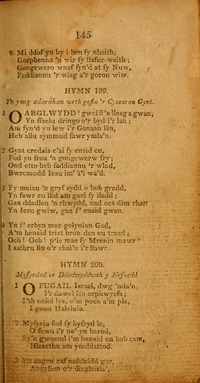 145
6 Mi ddof yn hy i ben fy nhaith,
Gorphenna 'n wir fy llafur-waith;
Gongcwero wnaf fyn'd at fy Nuw,
Feddiannu 'r wisg a'r goron wiw.
HYMN 199.
Yn ymg edarnhau wrth gofio 'r Cysson on Gynt.
O ARGLWYDD! gwel fi 'n llesg a gwan,
Yn ffaelu dringo o'r byd i'r lan;
Am fyn'd yn lew i'r Ganaan lân,
Heb allu symmud fawr ymla'n.
2 Gynt credais c'ai fy enaid cu,
Fod yn frau 'n gongcwerw fry;
Ond etto heb feddiannu 'r wlad,
Bwrcasodd Iesu im' i'w wa'd.
3 Fy meiau 'n gryf sydd o bob gradd,
Yn fawr eu llid am gael fy lladd;
Gan ddadleu 'n rhwydd, nad oes dim rhan
Yn Iesu gwiw, gan f' enaid gwan.
4 Yn f' erbyn mae gelynion Gad,
A'm henaid trist bron dan eu traed;
Och! Och! p'le mae fy Mrenin mawr
I sathru llu o'r rhai'n i'r llawr.
HYMN 200.
Myfyrdod ar Ddedwyddwch y Nefoedd
1 O FUGAIL Israel, dwg 'mla'n,
I'r dawel lân orphwysfa;
I'th neisol lys, o'm poen a'm pla,
I ganu Haleluia.
2 Myfyria fod fy hyfryd le,
O fewn i'r ne' yn barod,
Sy'n gwneud i'm henaid cu bob cam,
Hiraethu am ymddattod.
3 Yn angeu caf nefolaidd gar,
Angylion o'r disgleiria',